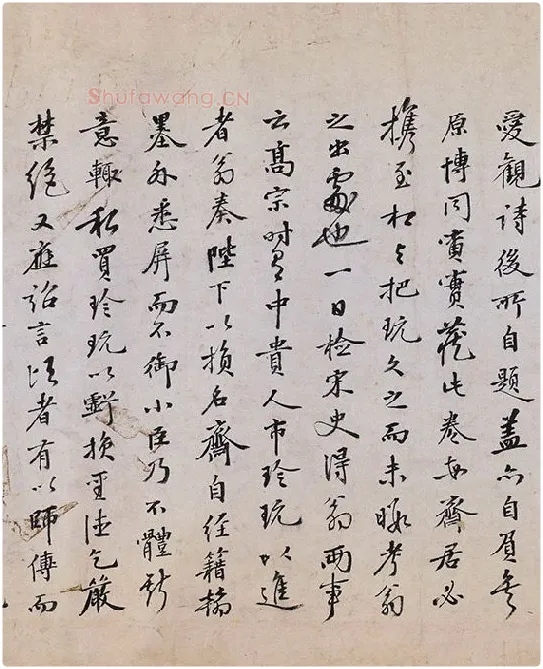 Shufawang.CN
愛觀詩後所自題蓋亦自負矣
原博同寅寶藏此卷每齋居必
携至相与把玩久之而未暇考翁
之出處也一日檢宋史得翁兩事
云髙宗時有中貴人市珍玩以進
者翁奏陛下以損名齋自經籍翰
墨外悉屏而不御小臣乃不體聖
意輙私買珍玩以虧損聖德乞嚴
禁絶又應詔言頃者有以師傅而